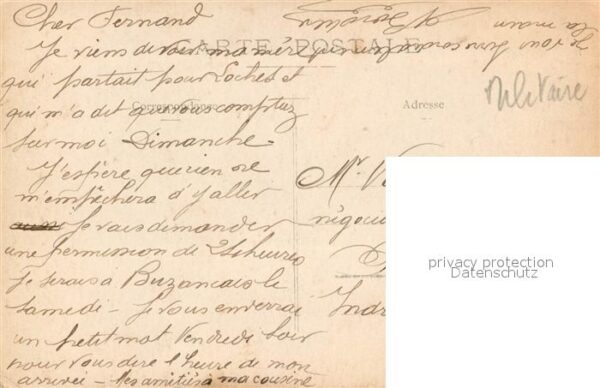 Cher Fernand
Je viens de voir ma mère
CARTE POSTALE
qui partait pour Loches et
Correspondance
qui m'a dit que vous comptiez
sur moi Dimanche.
J'espère que rien ne
m'empêchera d'y aller
je vais demander
une permission de 24 heures
je serais à Buzancais le
samedi - je vous enverrai
un petit mot Vendredi soir
pour vous dire l'heure de mon
arrivée - les amitiés à ma cousine
Adresse
Militaire
Mr
Indr
privacy protection
Datenschutz